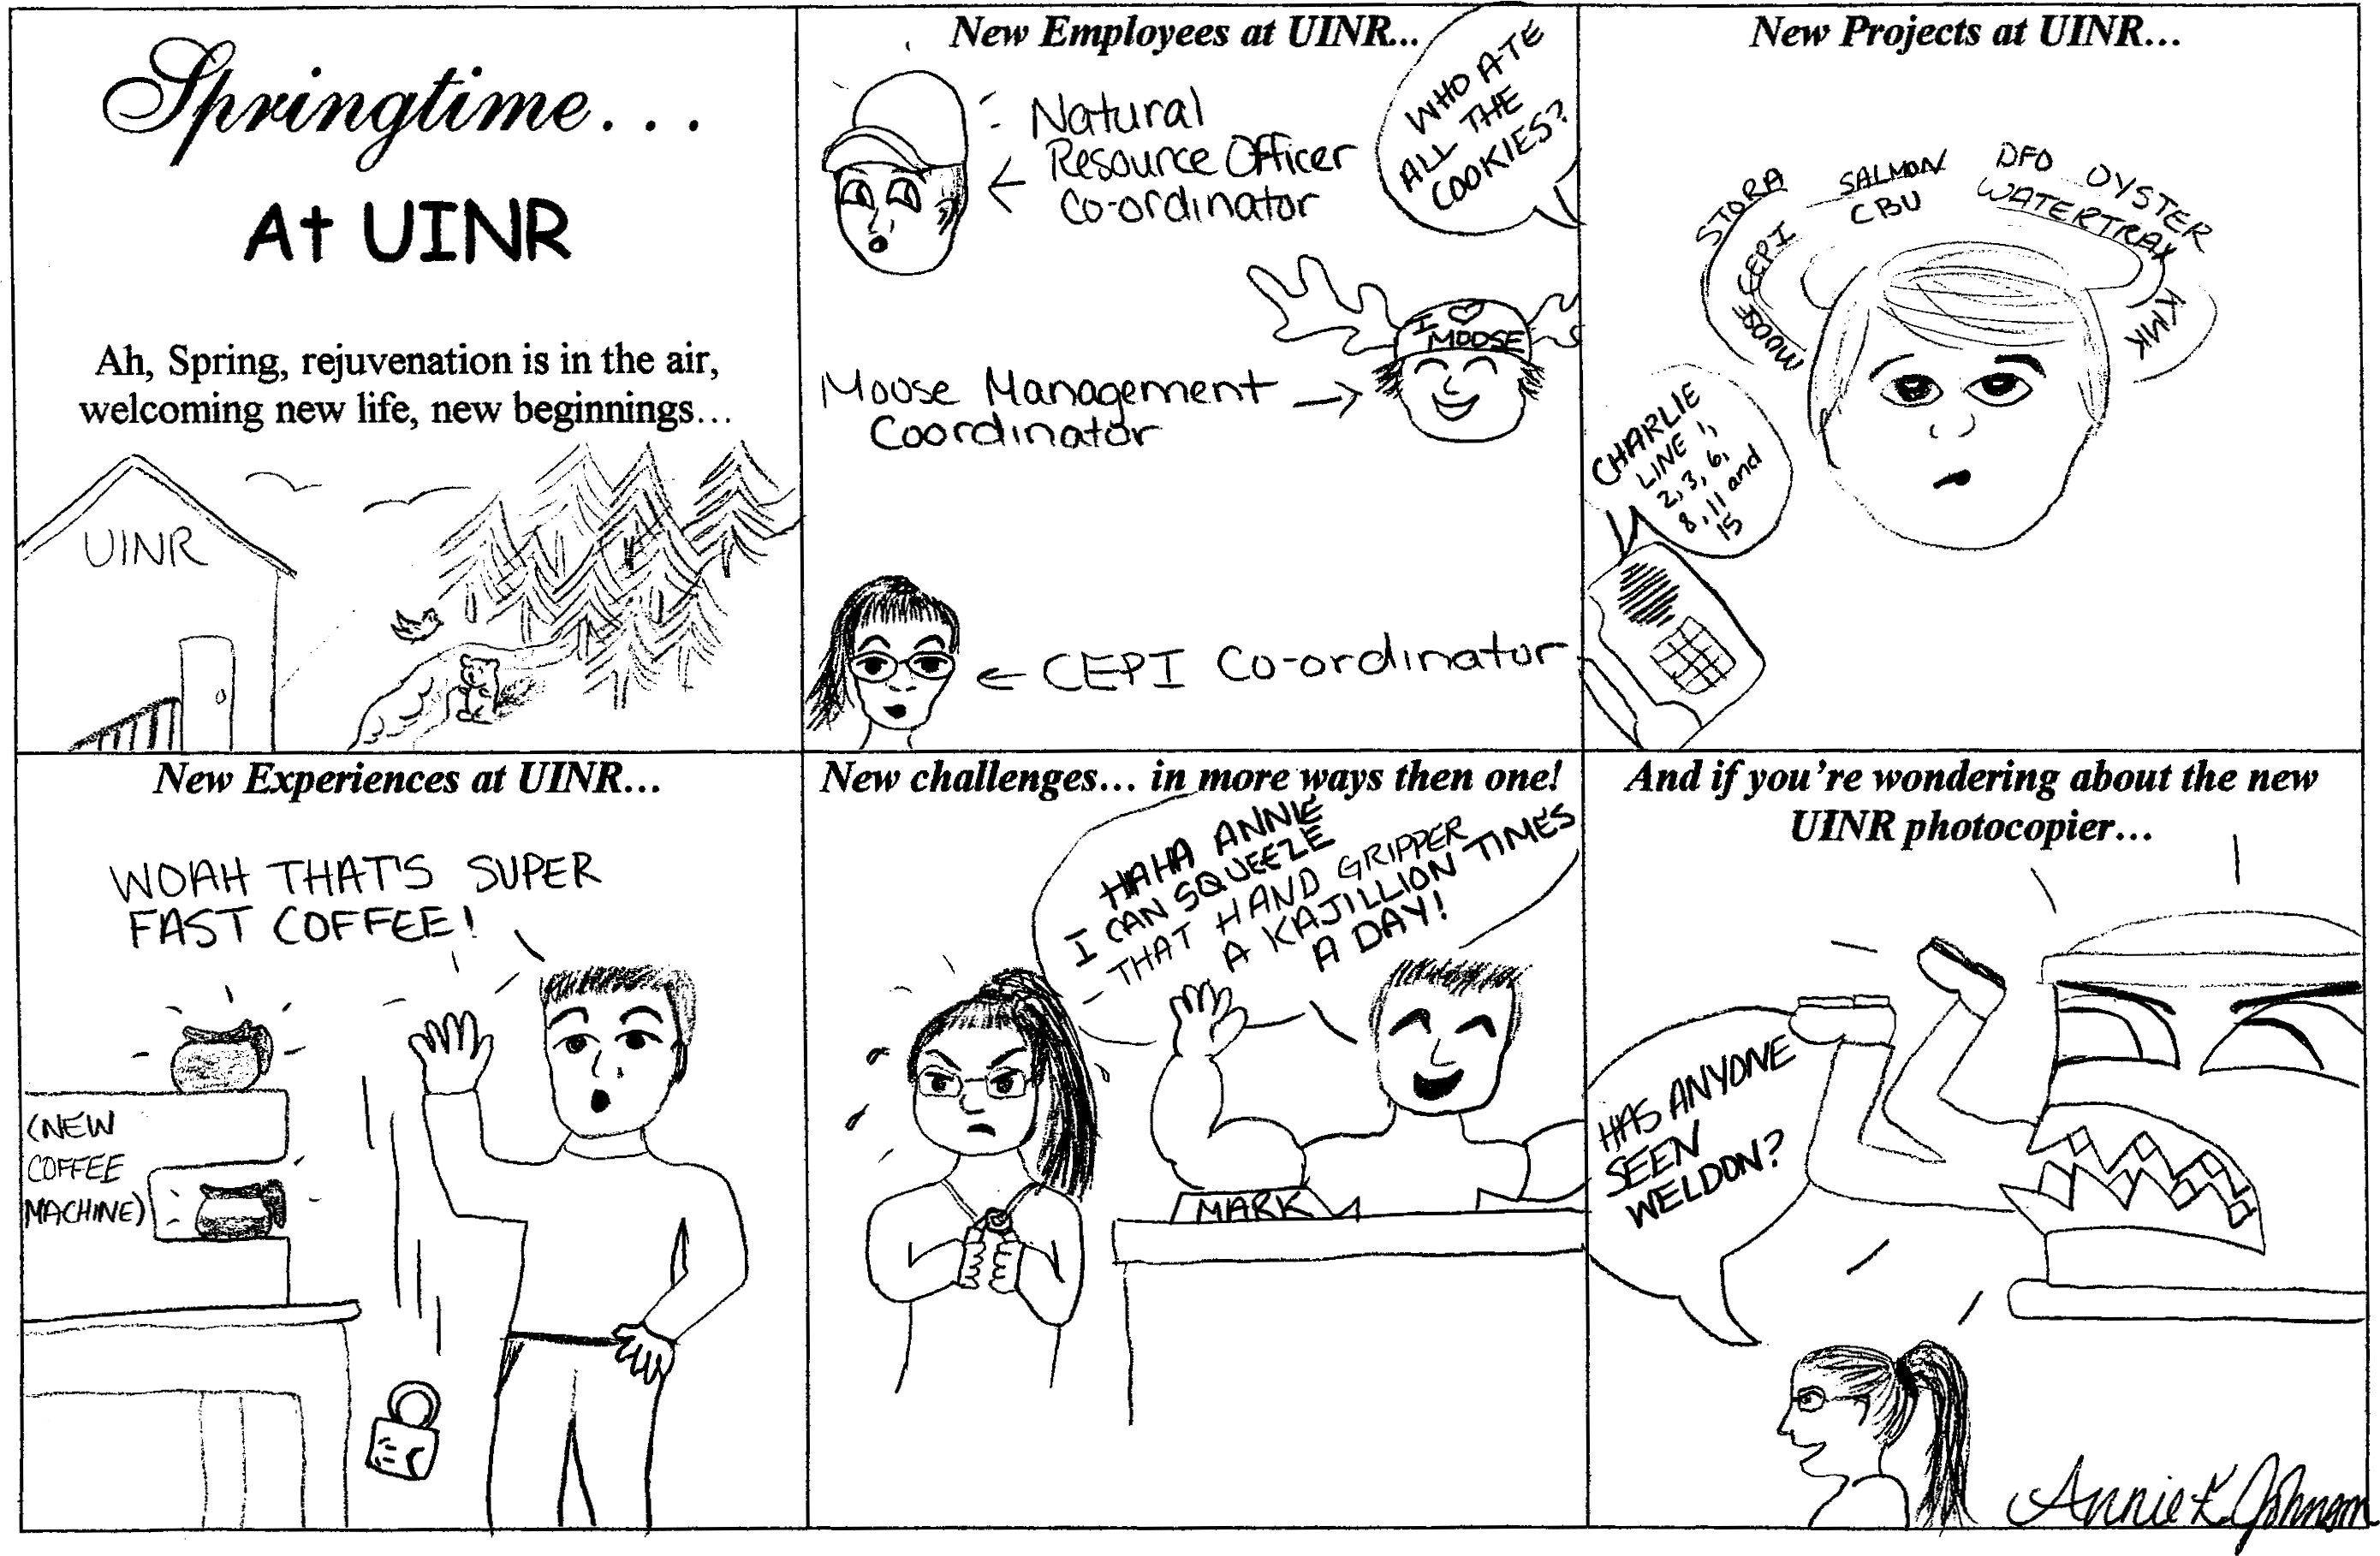 Springtime...
At UINR
Ah, Spring, rejuvenation is in the air,
welcoming new life, new beginnings...
UINR
New Employees at UINR...
WHO ATE
ALL THE
COOKIES?
Natural
Resource Officer
Co-ordinator
I ♡
MOOSE
Moose Management
Coordinator
CEPI Co-ordinator
New Projects at UINR...
STORA
SALMON
DFO
OYSTER
MOOSE
CEPI
CBU
WATERTRAX
KMK
CHARLIE
LINE 1,
2, 3, 6,
8, 11 and
15
New Experiences at UINR...
WOAH THAT'S SUPER
FAST COFFEE!
(NEW
COFFEE
MACHINE)
New challenges... in more ways then one!
HAHA ANNIE
I CAN SQUEEZE
THAT HAND GRIPPER
A KAJILLION TIMES
A DAY!
MARK
And if you're wondering about the new
UINR photocopier...
HAS ANYONE
SEEN
WELDON?
Annie E. Johnson